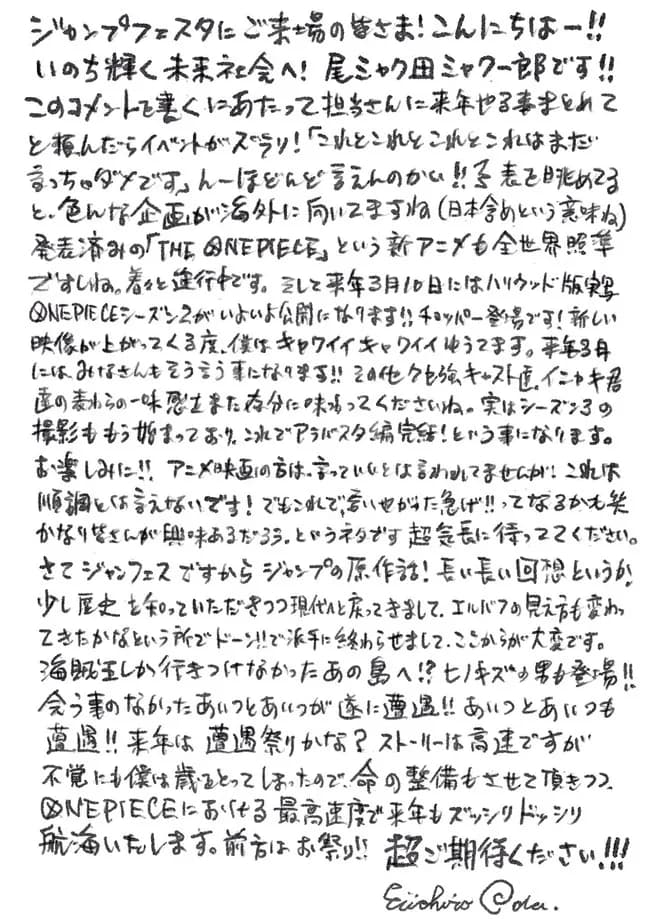 ジャンプフェスタにご来場の皆さま!こんにちはー!!
いのち輝く未来社会へ!尾ミャク田ミャク一郎です!!
このコメントを書くにあたって担当さんに来年やる事まとめて
と頼んだらイベントがズラリ!「これとこれとこれとこれはまだ
言っちゃダメです」んーほどんど言えんのかい!!予表を眺めてる
と、色んな企画が海外に向いてますね(日本含めという意味ね)
発表済みの「THE ONE PIECE」という新アニメも全世界照準
ですしね。着々と進行中です。そして来年3月10日にはハリウッド版実写
ONE PIECEシーズン2がいよいよ公開になります!!チョッパー登場です!新しい
映像が上がってくる度、僕はキャワイイキャワイイゆうてます。来年3月
には、みなさんもそう言う事になります!!その他クセ強キャスト達、イニャキ君
達の麦わらの一味愛もまた存分に味わってくださいね。実はシーズン3の
撮影ももう始まっており、これでアラバスタ編完結!という事になります。
お楽しみに!!アニメ映画の方は、言っていいとは言われてませんが!これは
順調とは言えないです!でもこれで、言いやがった急げ!!ってなるかも笑
かなり皆さんが興味あるだろう、というネタです超気長に待っててください。
さてジャンフェスですからジャンプの原作話!長い長い回想というか、
少し歴史を知っていただきつつ現代へと戻ってきまして、エルバフの見え方も変わっ
てきたかなという所でドーン!!で派手に終わらせまして、ここからが大変です。
海賊王しか行きつけなかったあの島へ!?ヒノキズの男も登場!!
会う事のなかったあいつとあいつが遂に遭遇!!あいつとあいつも
遭遇!!来年は遭遇祭りかな?ストーリーは高速ですが
不覚にも僕は歳をとってしまったので、命の整備もさせて頂きつつ、
ONE PIECEにおける最高速度で来年もズッシリドッシリ
航海いたします。前方はお祭り!!超ご期待ください!!!
Eiichiro Oda.